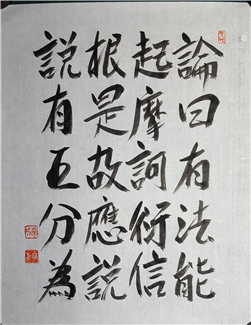 論曰有法能
起摩訶衍信
根是故應說
說有五分為